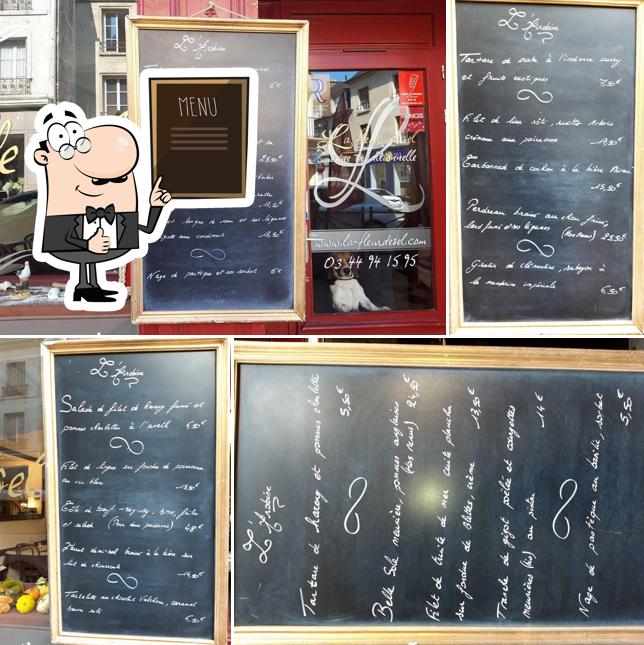 L'Ardoise
MENU
6€
23,50€
13,50€
et langue de veau et ses légumes
13,50€
Nage de pastèque et son sorbet 6€
La fleur de sel
Cuisine traditionnelle
www.la-fleurdesel.com
03 44 94 15 95
L'Ardoise
Tartare de crabe à l'indienne curry
et fruits exotiques 7,50€
Filet de lieu rôti, risotto
crémeux aux poireaux
Carbonnade de cochon à la bière
15,50€
Perdreau braisé au chou frisé,
lard fumé et ses légumes (Hors Menus) 23,50€
Gratin de clémentines, sabayon à
la mandarine impériale 6,50€
L'Ardoise
Salade de filet de hareng fumé et
pommes charlottes à l'aneth 5,50€
Filet de lingue sur fondue de poireaux
au vin blanc 13,50€
Côte de bœuf
et salade (Pour deux personnes) 48€
demi-sel braisé à la bière sur
lit de choucroute 14,50€
Tartelette au chocolat Valrhona, caramel
beurre salé 5,50€
L'Ardoise
Tartare de hareng et pommes charlotte
5,50€
Belle Sole meunière, pommes anglaises
(Hors menus) 24,50€
Filet de truite de mer cuite plancha
sur fondue de blettes, crème 13,50€
Tranche de gigot poêlée et courgettes
meunières (bio) au pistou 14€
Nage de pastèque au basilic, sorbet
5,50€